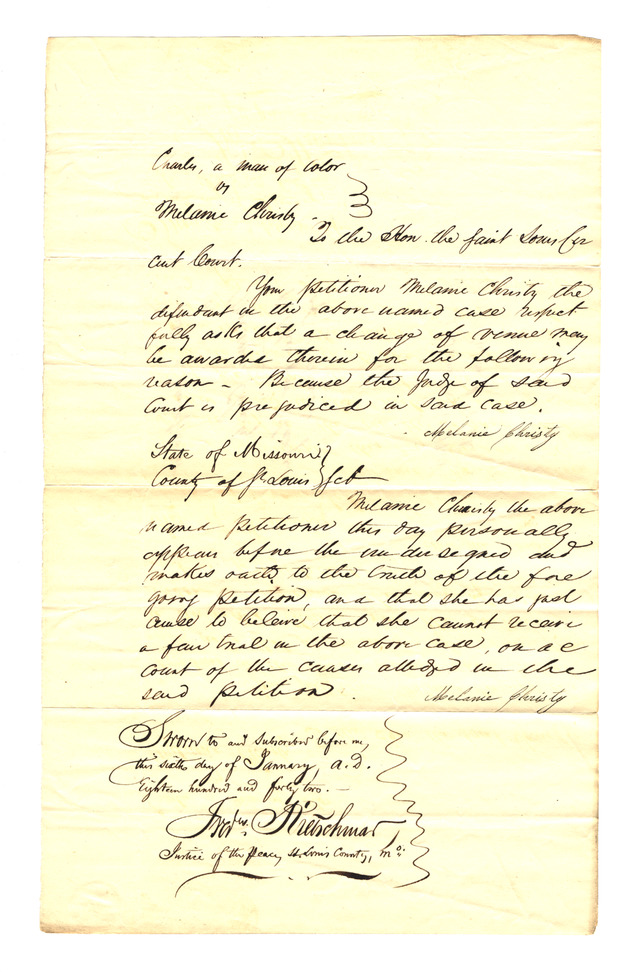 Charles, a man of color
vs
Melanie Christy.
To the Hon. the Saint Louis Cir
cuit Court.
Your petitioner Melanie Christy the
defendant in the above named case respect
fully asks that a change of venue may
be awarded therein for the following
reason – Because the Judge of said
Court is prejudiced in said case.
Melanie Christy
State of Missouri
County of St. Louis } Sct
Melanie Christy the above
named petitioner this day personally
appears before the undersigned and
makes oath to the truth of the fore
going petition, and that she has just
cause to beleive that she cannot receive
a fair trial in the above case, on ac
count of the causes alledged in the
said petition.
Melanie Christy
Sworn to and subscribed before me,
this sixth day of January, a.D.
Eighteen hundred and forty two. –
Fredw. Kretschmar
Justice of the Peace, St. Louis County, Mo: